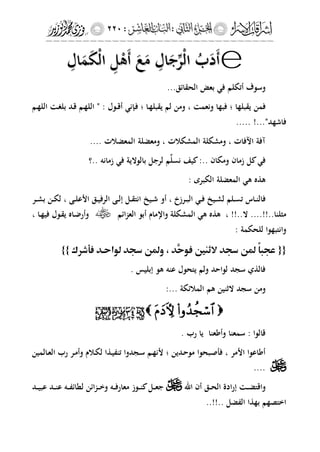 الجزء الثاني : الباب العاشر : ٢٢٠
أَدَبُ الرِّجَالِ مَعَ أَهْلِ الْكَمَالِ
وسوف أتكلم في بعض الحقائق...
فمن يقبلها ؛ فبها ونعمت ، ومن لم يقبلها ؛ فإني أقول : " اللهم قد بلغت اللهم
فاشهد"...! .....
آفة الآفات ، ومشكلة المشكلات ، ومعضلة المعضلات ....
في كل زمان ومكان ..: كيف نسلّم لرجل بالولاية في زمانه ..؟
هذه هي المعضلة الكبرى :
فالناس تسلم لشيخ في البرزخ ، أو شيخ انتقل إلى الرفيق الأعلى ، لكن بشر
مثلنا..!!.... لا..!! ، هذه هي المشكلة والإمام أبو العزائم وأرضاه يقول فيها ،
وانتبهوا للحكمة :
{{ عجباً لمن سجد لاثنين فوحَّد ، ولمن سجد لواحد فأشرك }}
فالذي سجد لواحد ولم يتحول عنه هو إبليس .
ومن سجد لاثنين هم الملائكة ...:
﴿ ٱسْجُدُوا۟ لِـَٔادَمَ ﴾
قالوا : سمعنا وأطعنا يا رب .
أطاعوا الأمر ، فأصبحوا موحدين ؛ لأنهم سجدوا تنفيذا لكلام وأمر رب العالمين
....
واقتضت إرادة الحق أن الله جعل كنوز معارفه وخزائن لطائفه عند عبيد
اختصهم بهذا الفضل ..!!..